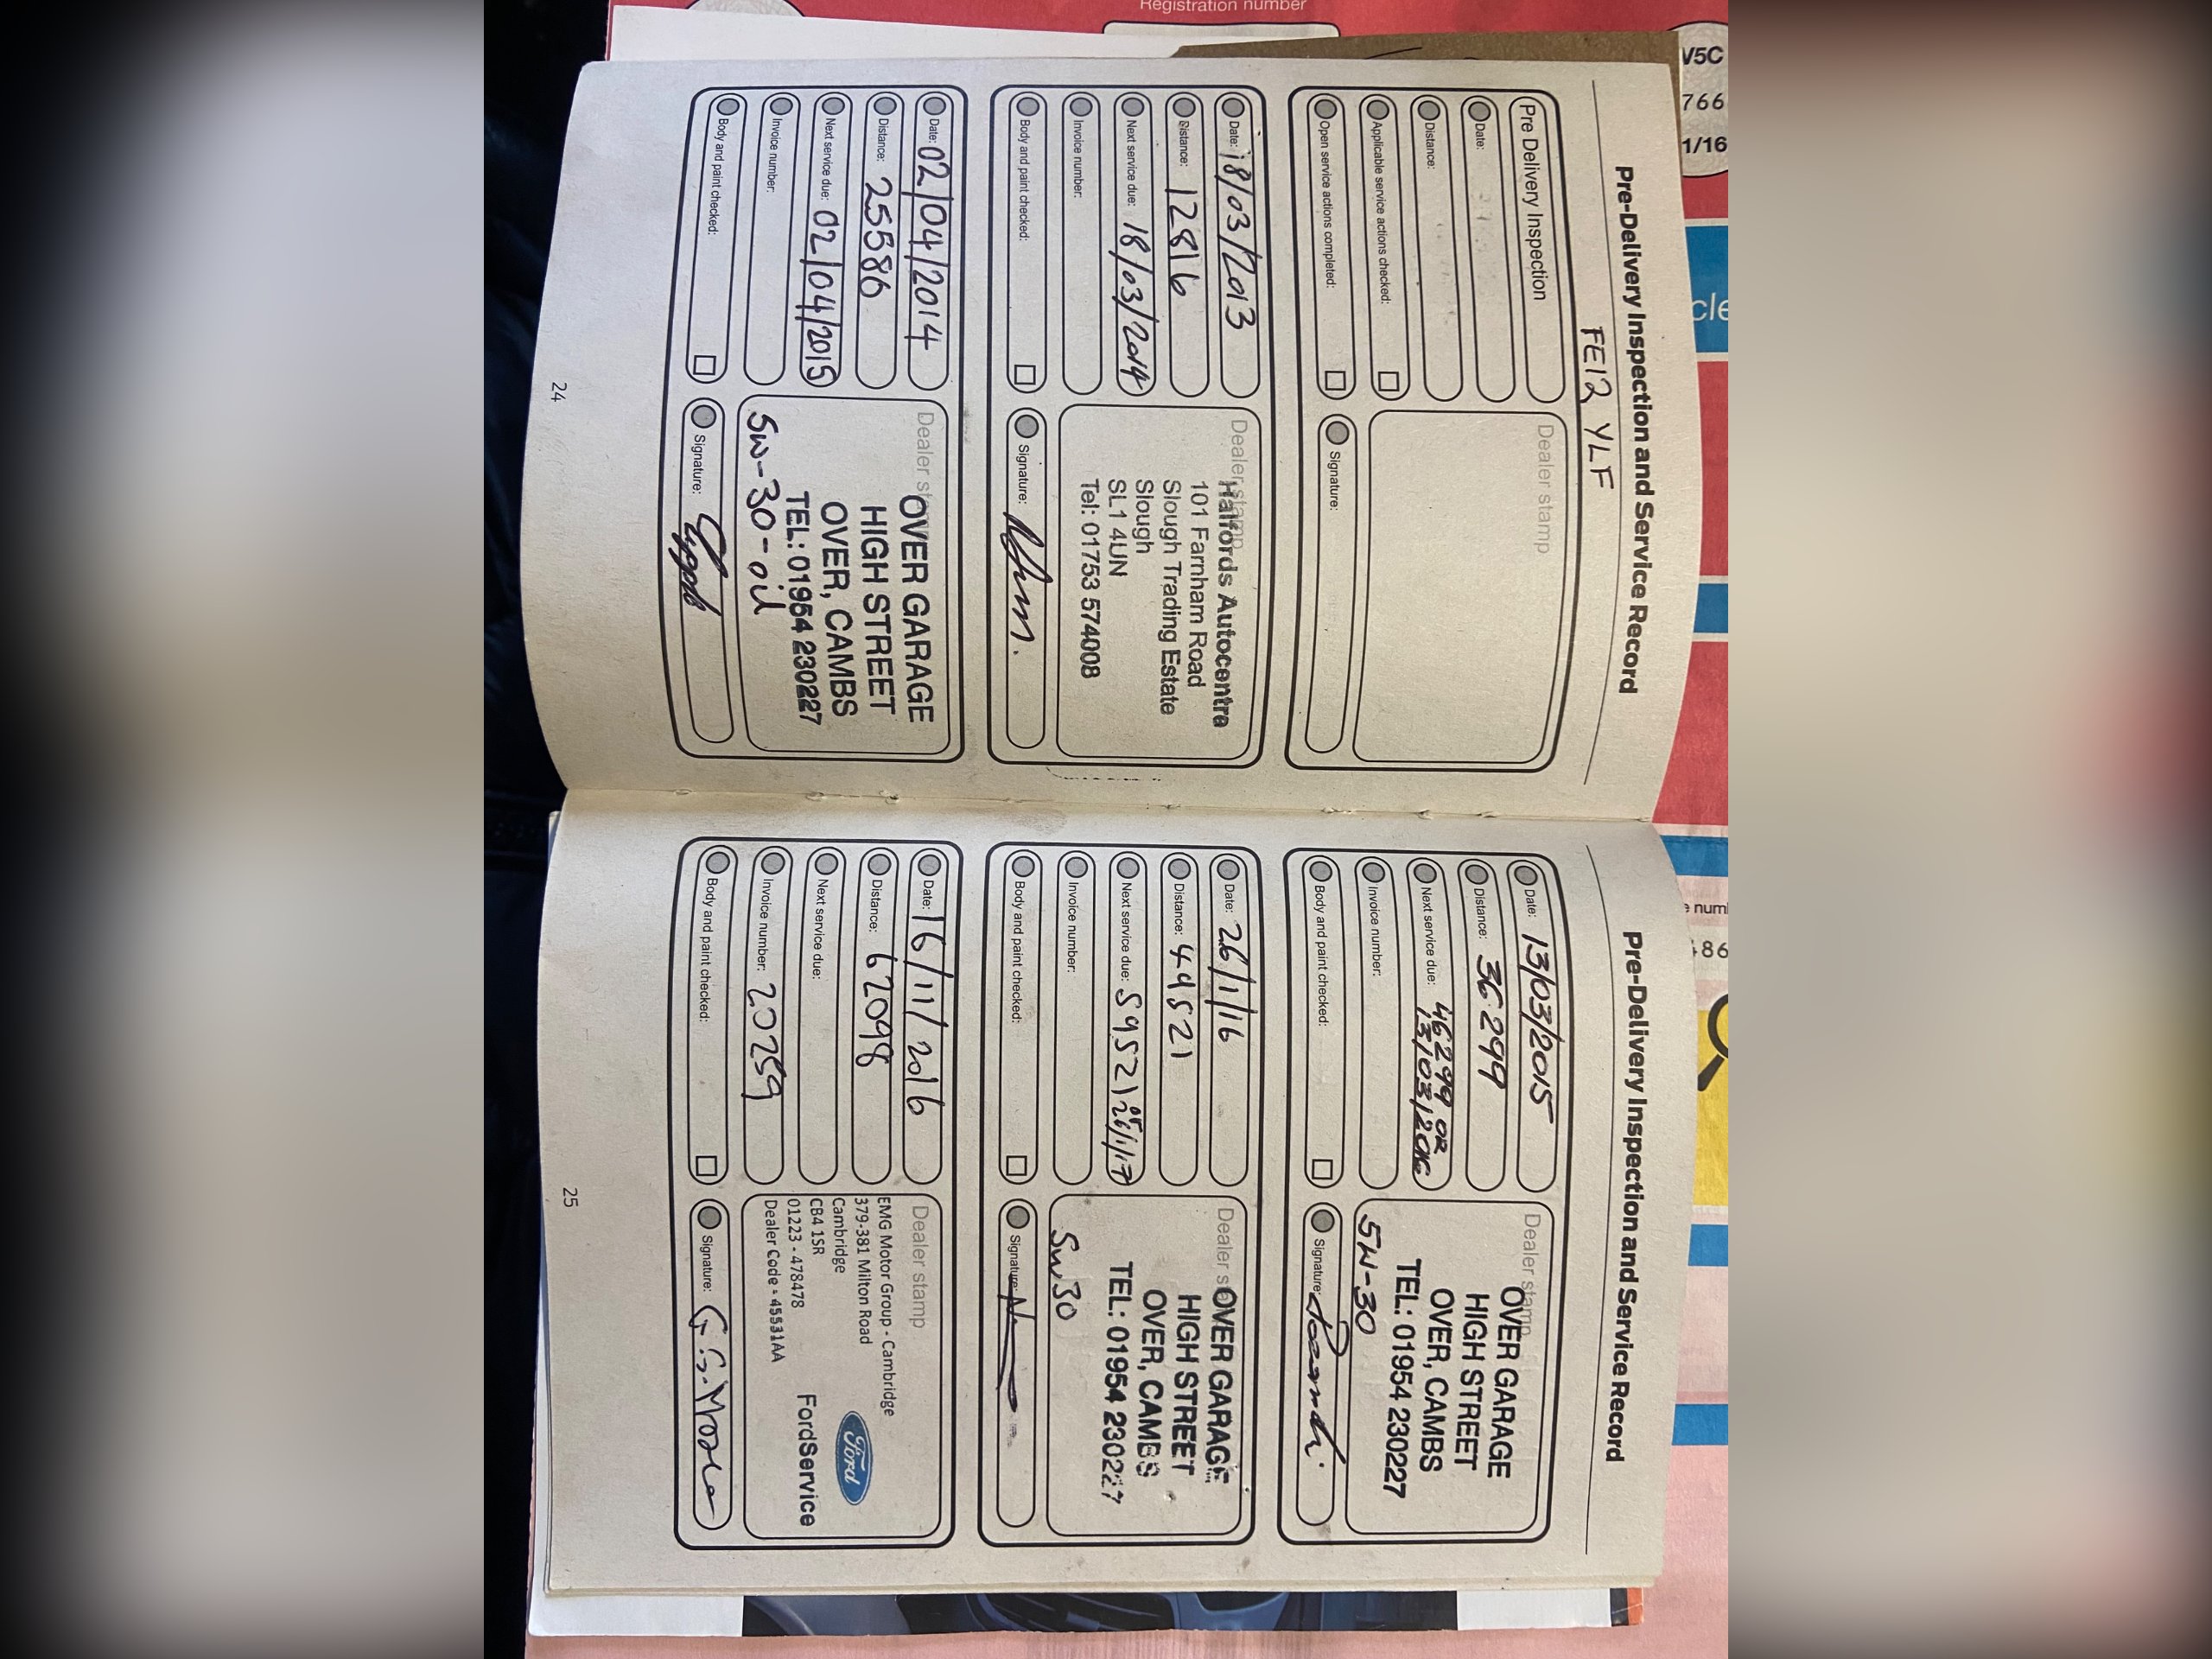 Registration number
V5C
766
1/16
cle
e num
486
Pre-Delivery Inspection and Service Record
FE12 YLF
Pre Delivery Inspection
Date:
Distance:
Applicable service actions checked:
Open service actions completed:
Dealer stamp
Signature:
Date: 18/03/2013
Distance: 12816
Next service due: 18/03/2014
Invoice number:
Body and paint checked:
Dealer stamp
Halfords Autocentre
101 Farnham Road
Slough Trading Estate
Slough
SL1 4UN
Tel: 01753 574008
Signature:
Date: 02/04/2014
Distance: 25586
Next service due: 02/04/2015
Invoice number:
Body and paint checked:
Dealer stamp
OVER GARAGE
HIGH STREET
OVER, CAMBS
TEL: 01954 230227
5W-30-oil
Signature:
24
Pre-Delivery Inspection and Service Record
Date: 13/03/2015
Distance: 36299
Next service due: 46299 OR
13/03/2016
Invoice number:
Body and paint checked:
Dealer stamp
OVER GARAGE
HIGH STREET
OVER, CAMBS
TEL: 01954 230227
5W-30
Signature:
Date: 26/1/16
Distance: 44521
Next service due: 59521 or 25/1/17
Invoice number:
Body and paint checked:
Dealer stamp
OVER GARAGE
HIGH STREET
OVER, CAMBS
TEL: 01954 230227
5w30
Signature:
Date: 16/11/2016
Distance: 62098
Next service due:
Invoice number: 20259
Body and paint checked:
Dealer stamp
EMG Motor Group - Cambridge
379-381 Milton Road
Cambridge
CB4 1SR
01223 - 478478
Dealer Code - 45531AA
Ford
FordService
Signature:
25